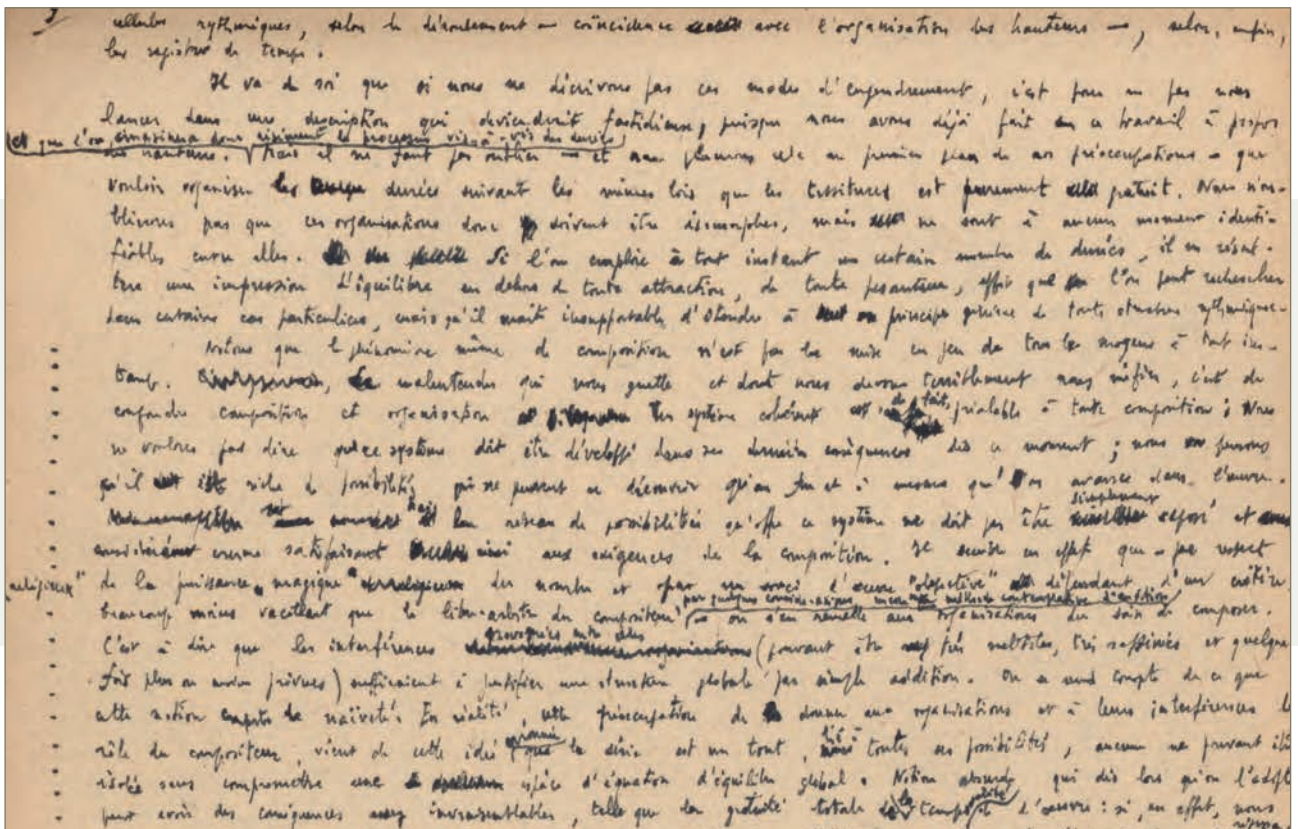 3
cellules rythmiques, selon le déroulement — coïncidence avec l'organisation des hauteurs —, selon, enfin,
les registres de temps.
Il va de soi que si nous ne décrivons pas ces modes d'engendrement, c'est pour ne pas nous
lancer dans une description qui deviendrait fastidieuse, puisque nous avons déjà fait ce travail à propos
et que l'on vis-à-vis des durées
des hauteurs. Mais il ne faut pas oublier — et nous plaçons cela au premier plan de nos préoccupations — que
vouloir organiser les durées suivant les mêmes lois que les tessitures est purement gratuit. Nous n'ou-
blierons pas que ces organisations donc doivent être isomorphes, mais ne sont à aucun moment identi-
fiables entre elles. Si l'on emploie à tout instant un certain nombre de durées, il en résul-
tera une impression d'équilibre en dehors de toute attraction, de toute pesanteur, effet que l'on peut rechercher
dans certains cas particuliers, mais qu'il serait insupportable d'étendre à principe général de toute structure rythmique.
Notons que le phénomène même de composition n'est pas la mise en jeu de tous les moyens à tout ins-
tant. malentendu qui nous guette et dont nous devons terriblement nous méfier, c'est de
confondre composition et organisation Un système cohérent est de fait, préalable à toute composition ; Nous
ne voulons pas dire que ce système doit être développé dans ses dernières conséquences dès ce moment ; nous pensons
qu'il est riche de possibilités qui ne peuvent se découvrir qu'au fur et à mesure qu'on avance dans l'œuvre.
Mais le réseau de possibilités qu'offre ce système ne doit pas être simplement exposé et
considéré comme satisfaisant ainsi aux exigences de la composition. Il semble en effet que — par respect
"religieux" de la puissance "magique" du nombre et par l'œuvre "objective" dépendant d'un critère
beaucoup moins vacillant que le libre-arbitre du compositeur, par quelques considérations une méthode contemplative d'audition — on s'en remette aux organisations du soin de composer.
C'est à dire que les interférences provoquées entre elles (pouvant être très subtiles, très raffinées et quelque-
fois plus ou moins prévues) suffiraient à justifier une structure globale par simple addition. On se rend compte de ce que
cette notion comporte de naïveté. En réalité, cette préoccupation de donner aux organisations et à leurs interférences le
rôle du compositeur, vient de cette idée que la série est un tout, lié à toutes ses possibilités, aucune ne pouvant être
isolée sans compromettre une espèce d'équation d'équilibre global. Notion absurde qui dès lors qu'on l'adopte
peut avoir des conséquences invraisemblables, telle que la gratuité totale de l'œuvre : si, en effet, nous